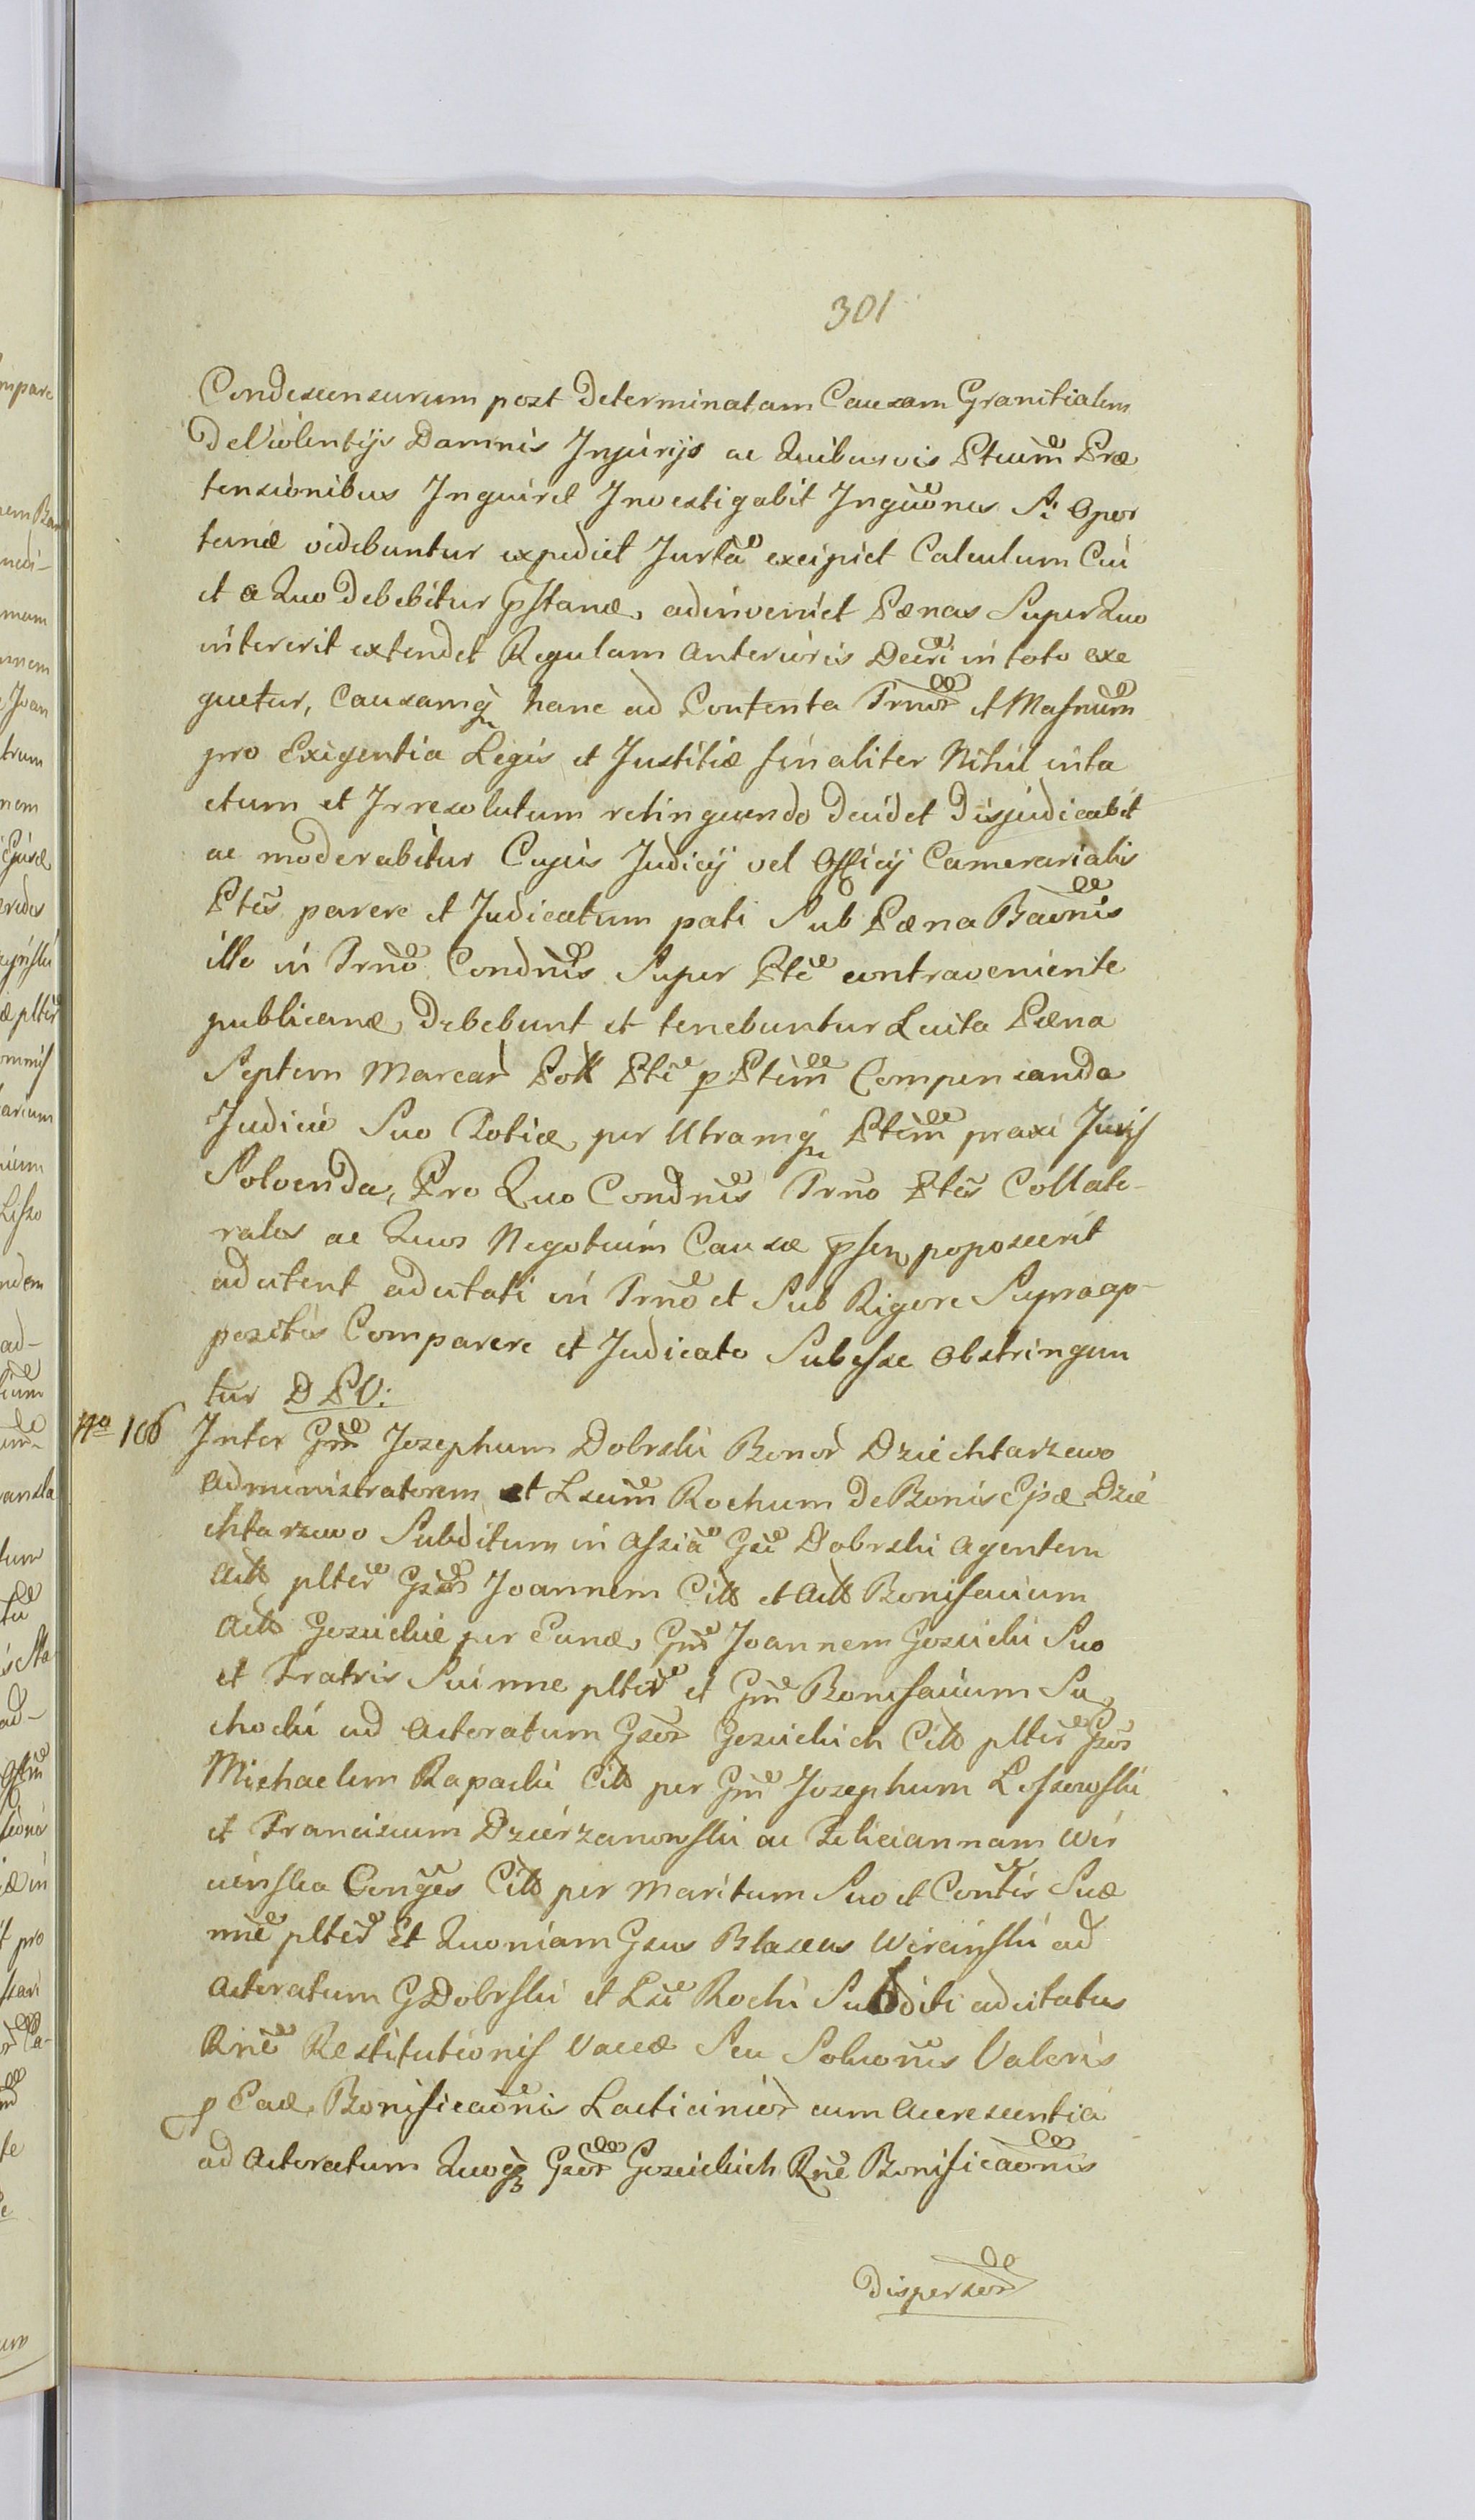 301
Condescensurum post Determinatam Causam Granitialem
De Violentijs Damnis Jnjurijs ac Quibusvis Ptium Præ
tensionibus Jnquiret Jnvestigabit Jnquiones Si Opor
tunæ videbuntur expediet Jurta excipiet Calculum Cui
et a Quo Debebitur pstanæ, adinveniet Pænas Super Quo
intererit extendet Regulam Anterioris Decri in toto exe
quetur, Causamq hanc ad Contenta Trnor et Mafnum
pro Exigentia Legis et Justitiæ finaliter Nihil inta
ctum et Jrresolutum relinquendo Decidet Disjudicabit
ac moderabitur Cujus Judicij vel Officij Camerarialis
Ptes parere et Judicatum pati Sub Pæna Baonis
illo in Trno Condnis Super Pte contraveniente
publicanæ, Debebunt et tenebuntur Luita Pæna
Septem Marcar Poll Pti p Ptem Compensanda
Judicio Suo Rotiæ, per Utramq Ptem praxi Juris
Solvenda, Pro Quo Condnis Trno Ptes Collate-
rales ac Quos Negotium Causæ psen poposcerit
adcitent adcitati in Trno et Sub Rigore Supraap-
positis Comparere et Judicato Subesse Obstringun
tur D P V:
Nro 106 Jnter Gm Josephum Dobrski Bonor Dziechtarzewo
Administratorem et Lsum Rochum De Bonis Ejsæ Dzie
chtarzewo Subditum in Assia Gsi Dobrski Agentem
Actt plter Gsos Joannem Citt et Actt Bonifacium
Actt Gosiickie per Eunæ, Gm Joannem Gosiicki Suo
et Fratris Sui nne plter et Gm Bonifacium Su
chocki ad Actoratum Gsor Gosiickich Citt plter Gsos
Michaelem Rapacki Citt per Gm Josephum Lessowski
et Franciscum Dzierzanowski ac Feliciannam Wir
cinska Conges Citt per Maritum Suo et Contis Suæ
nne plter Et Quoniam Gsus Blasius Wircinski ad
Actoratum G Dobrski et Lsi Rochi Subditi adcitatus
Rne Restitutionis Vaccæ Seu Soluonis Valoris
p Eaæ, Bonificaonis Lacticinior cum Accrescentia
ad Actoratum Quoq Gsor Gosiickich Rne Bonificaonis
Dispersor